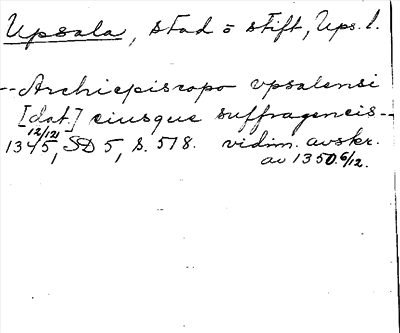 Upsala, stad o stift, Ups. l.
--Archiepiscopo vpsalensi
[dat.] eiusque suffraganeis--
12/12 1345, SD 5, s. 578. vidim. avskr.
av 1350 6/12.